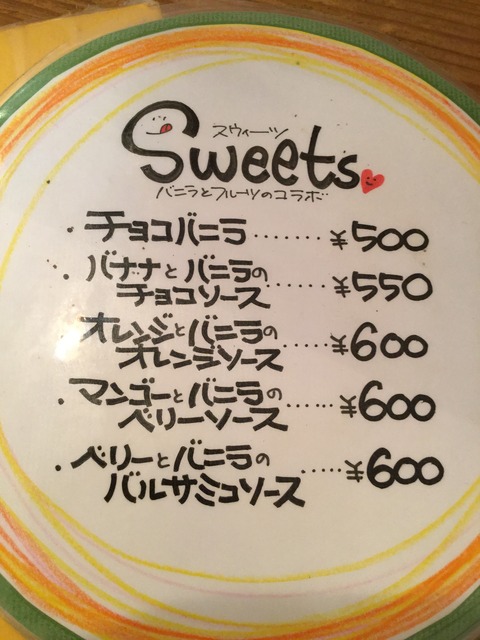 スウィーツ
Sweets
バニラとフルーツのコラボ
チョコバニラ ........ ¥500
・バナナとバニラの
チョコソース ...... ¥550
オレンジとバニラの
オレンジソース ..... ¥600
・マンゴーとバニラの
ベリーソース ...... ¥600
・ベリーとバニラの
バルサミコソース ..... ¥600